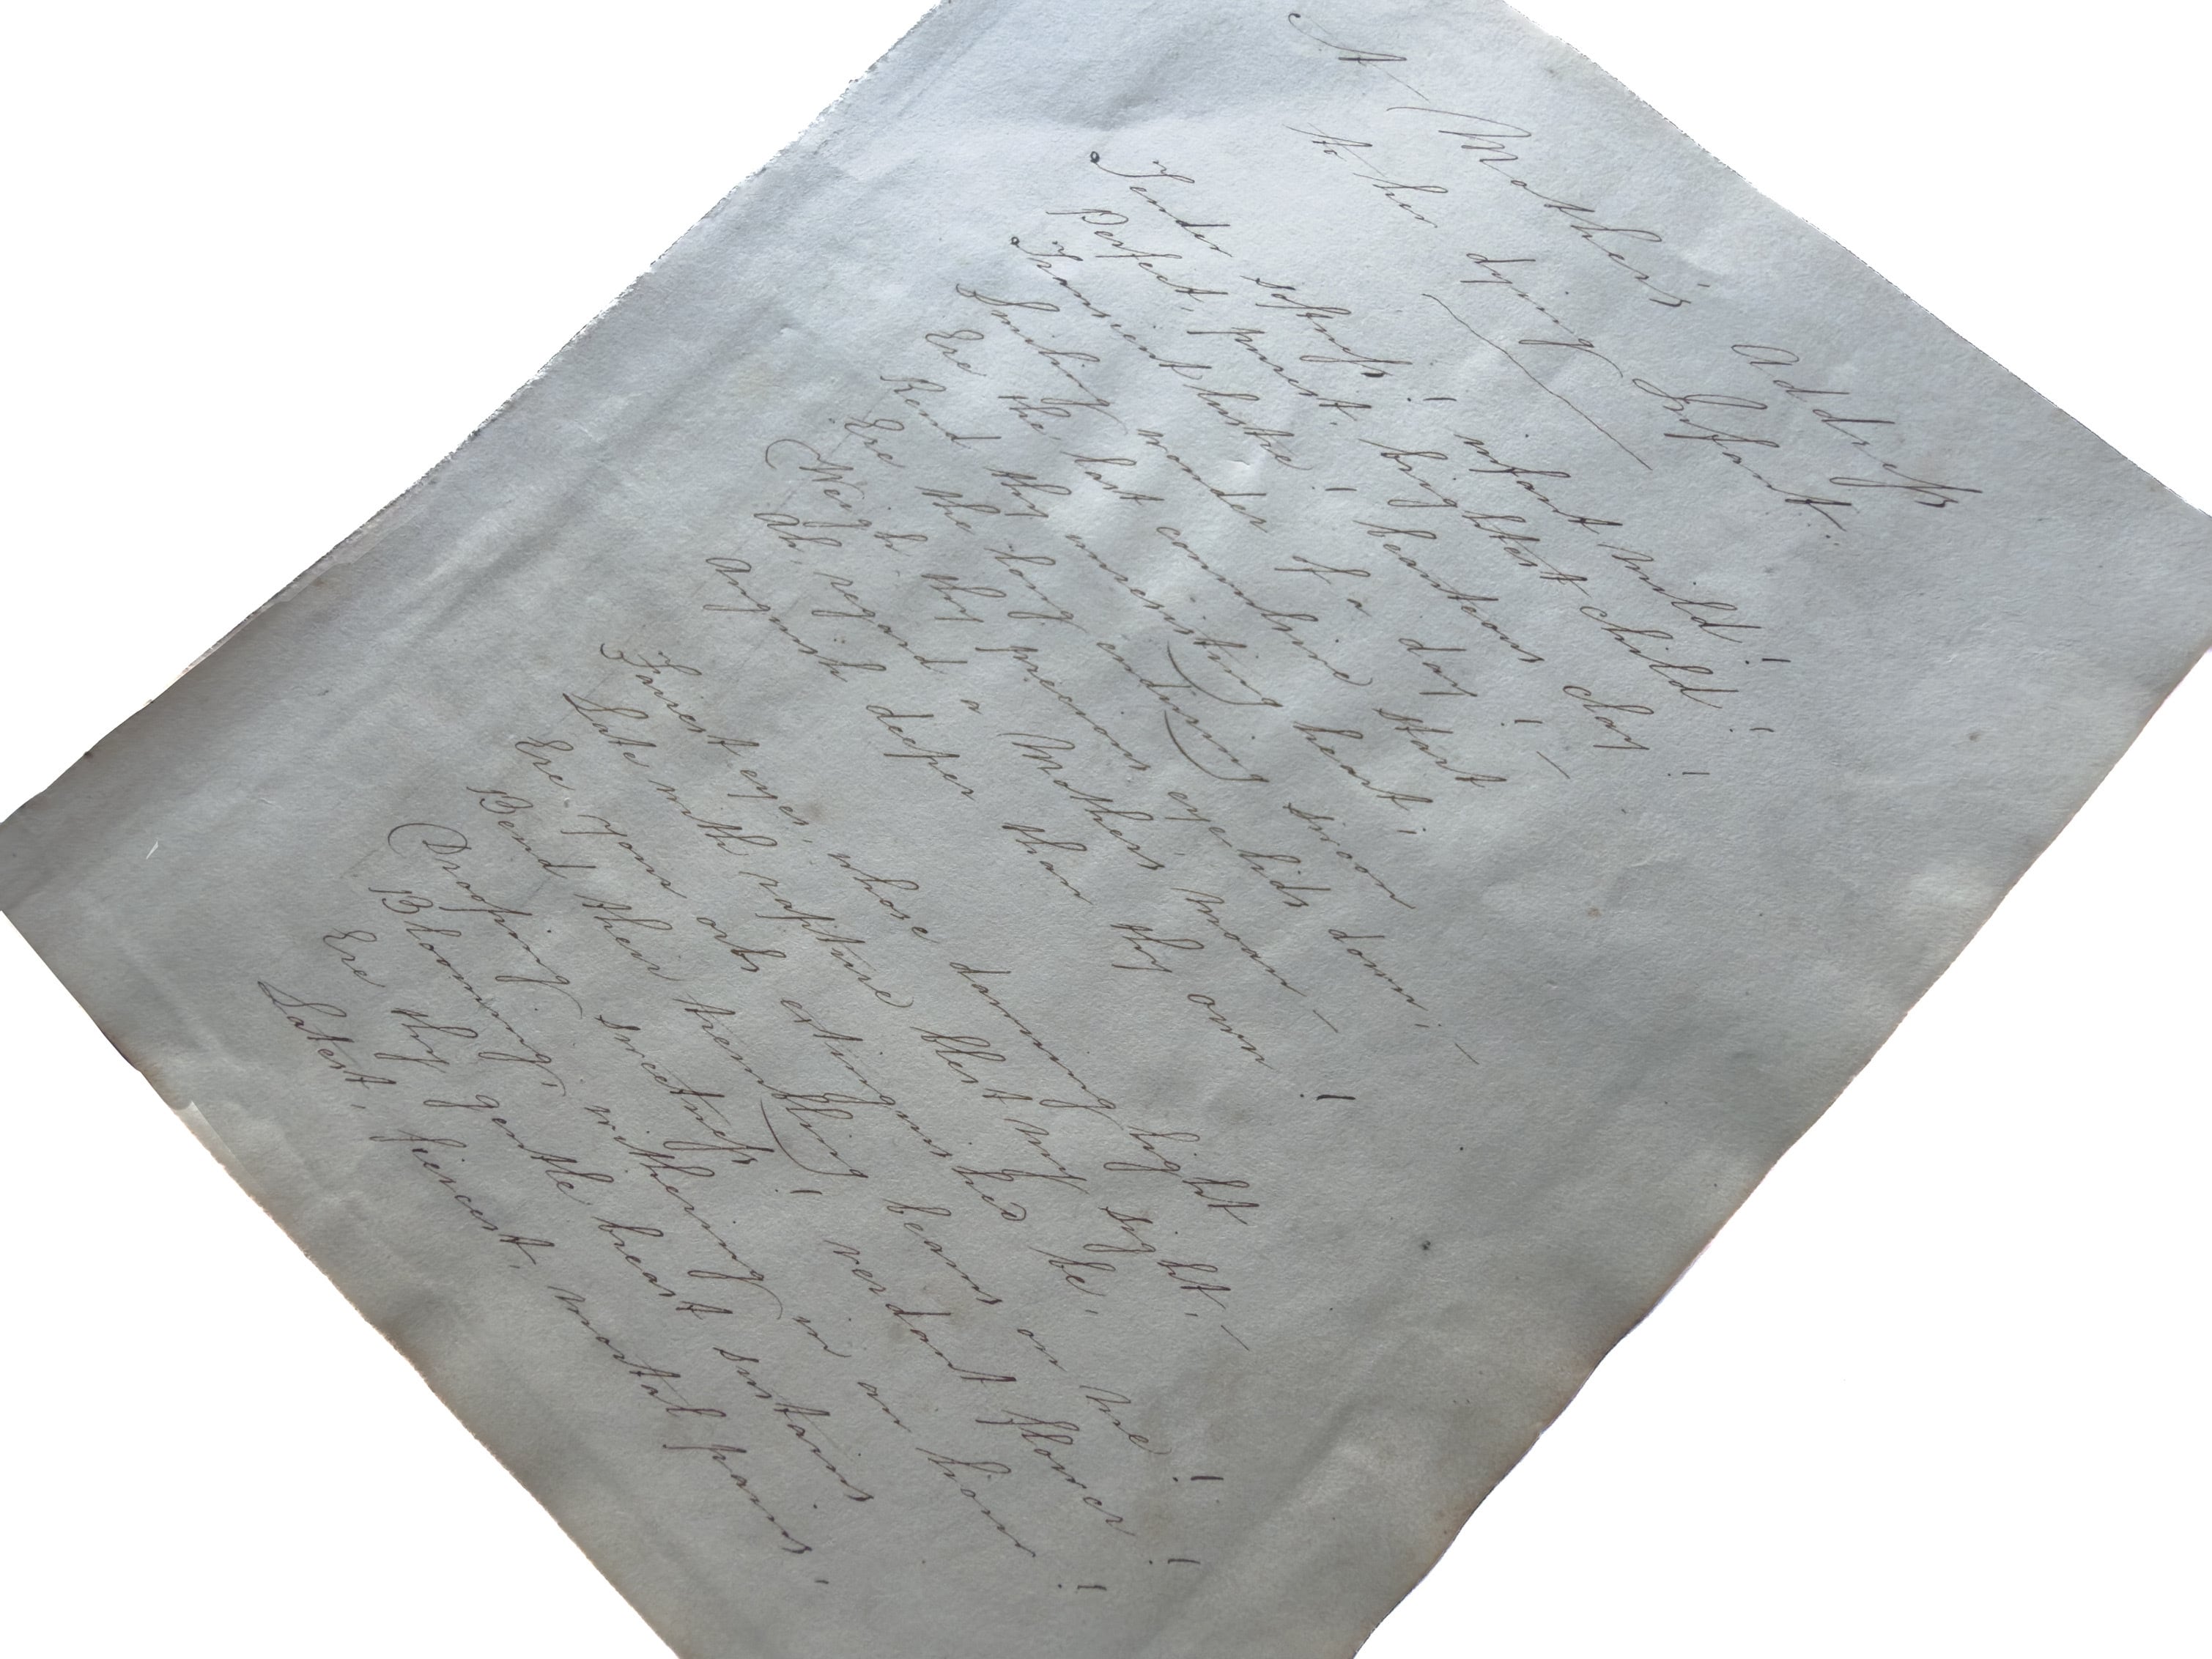 A Mother's Address
to her dying Infant.
Tender softness! infant mild!
Perfect, purest, brightest child!
Transient lustre! beauteous clay!
Smiling wonder of a day! —
Ere the last convulsive start
Rend thy unresisting heart;
Ere the long enduring swoon
Weigh thy precious eyelids down; —
Ah, regard a Mother's moan —
Anguish deeper than thy own!
Fairest eyes, whose dawning light
Late with rapture blest my sight, —
Ere your orbs extinguished be,
Bend their trembling beams on me!
Drooping sweetness! verdant flower!
Blooming, withering in an hour!
Ere thy gentle breast sustains
Latest, fiercest, mortal pains,